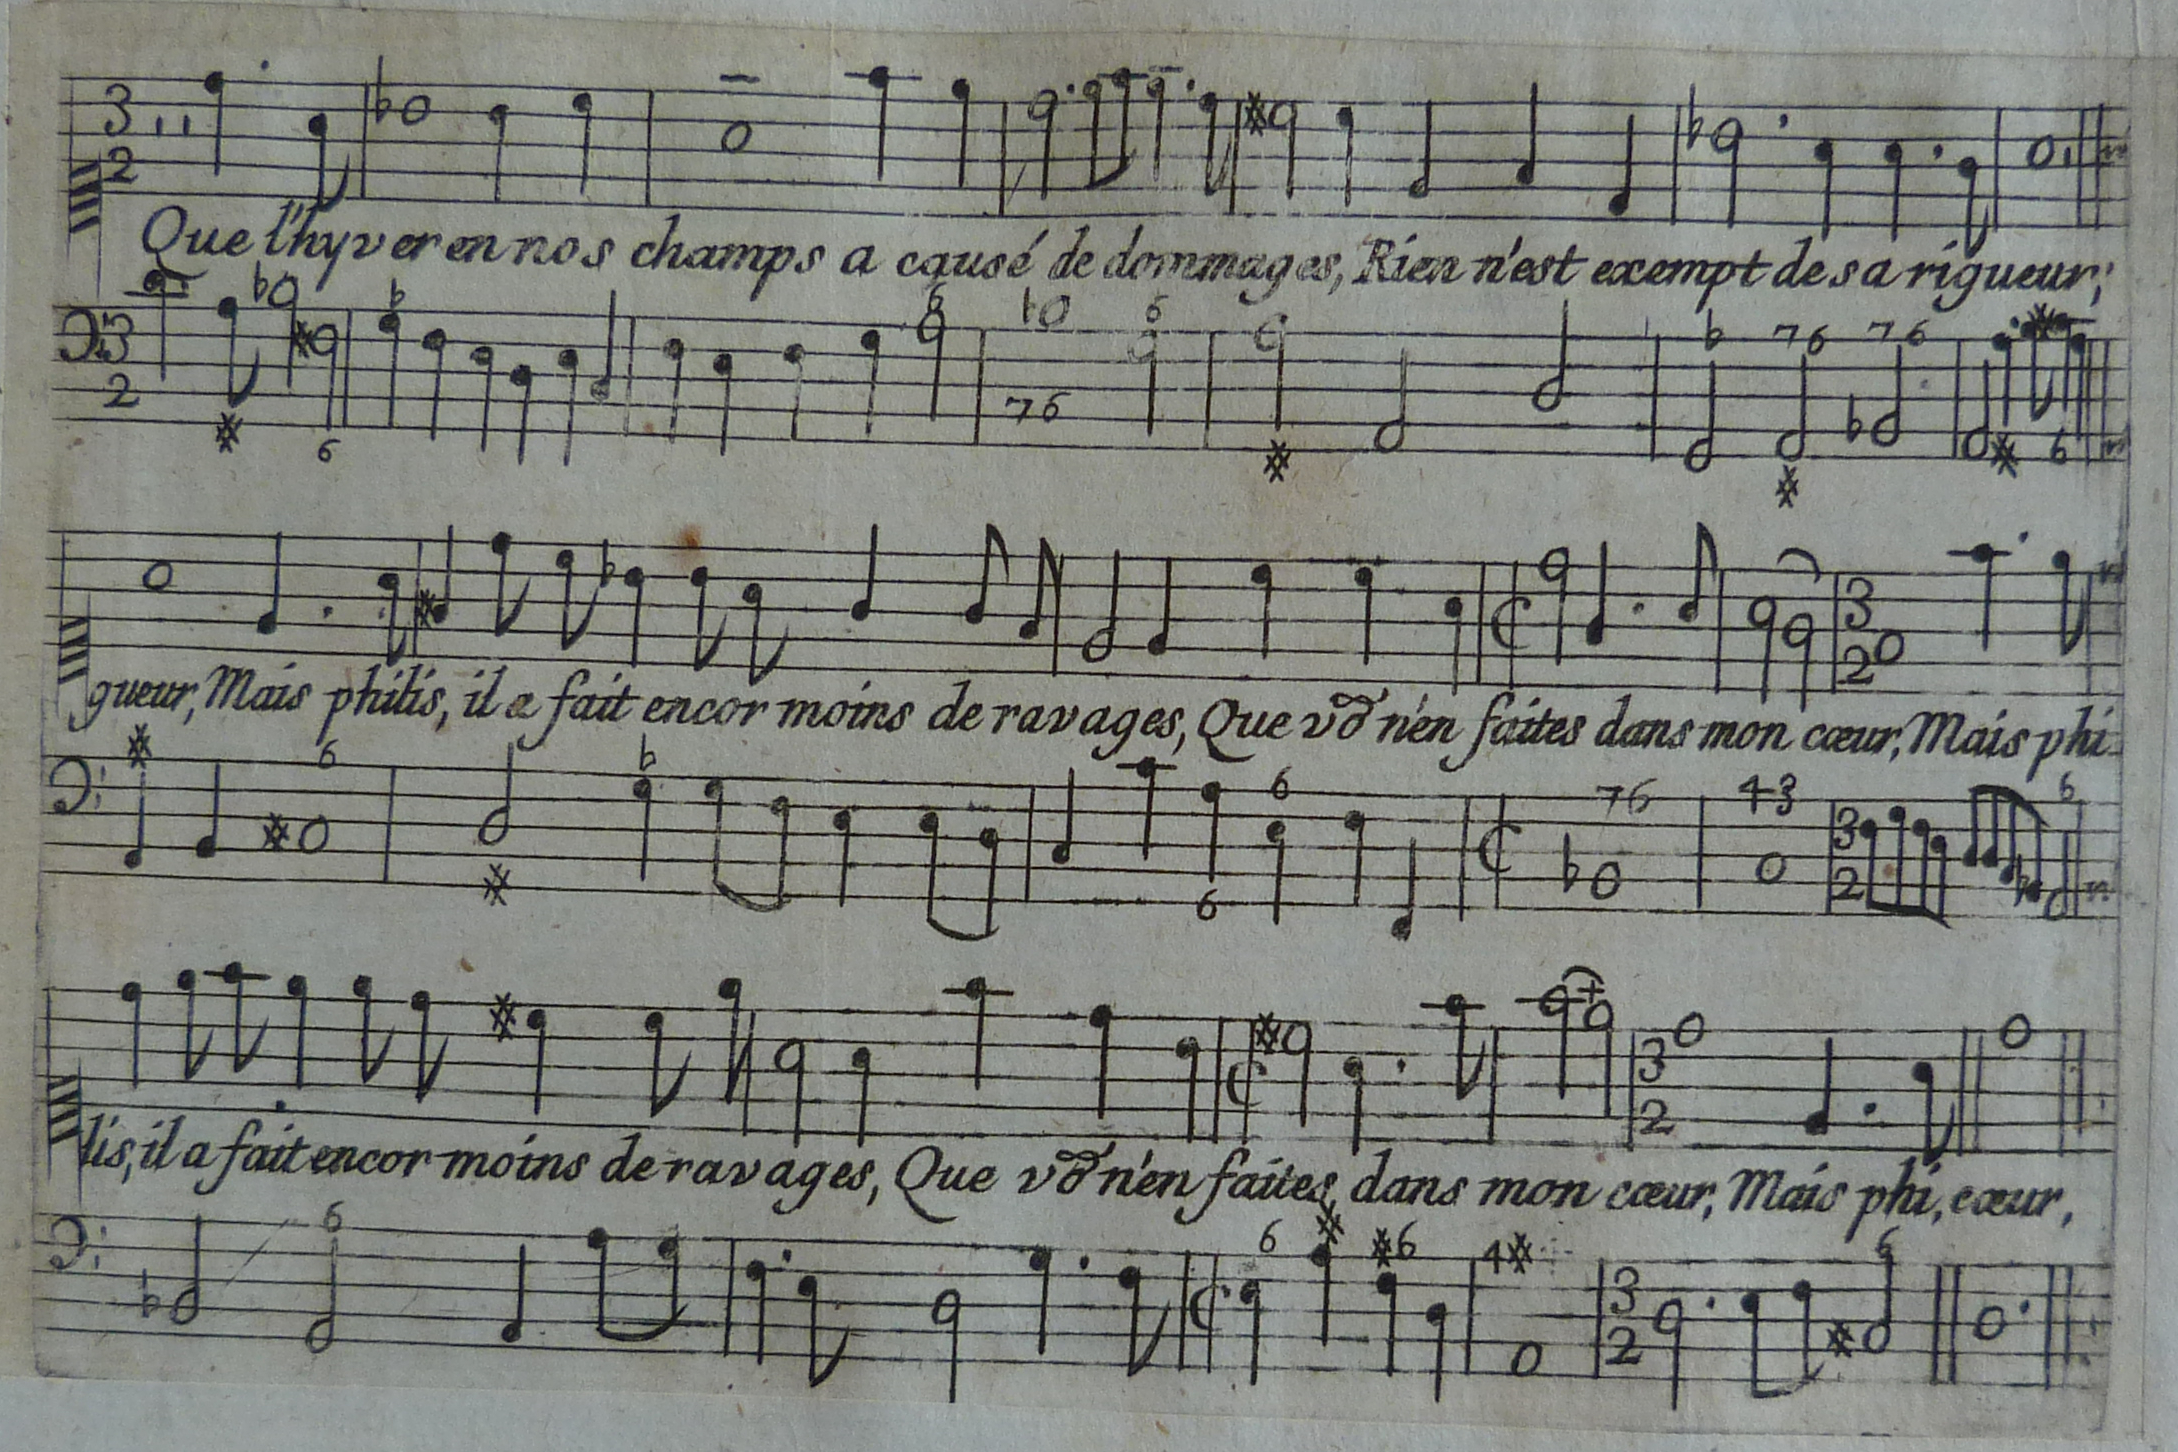 Que l'hyver en nos champs a causé de dommages, Rien n'est exempt de sa rigueur;
gueur, Mais philis, il a fait encor moins de ravages, Que v⁠o⁠9 n'en faites dans mon cœur, Mais phi
lis, il a fait encor moins de ravages, Que n'en faites, dans mon cœur, Mais phi, cœur,